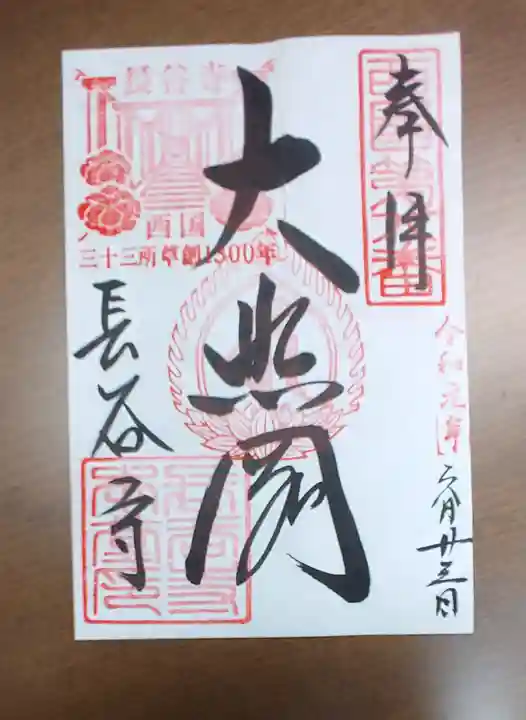 奉拝
令和元年六月廿三日
大悲閣
長谷寺
長谷寺
西国
三十三所草創1300年